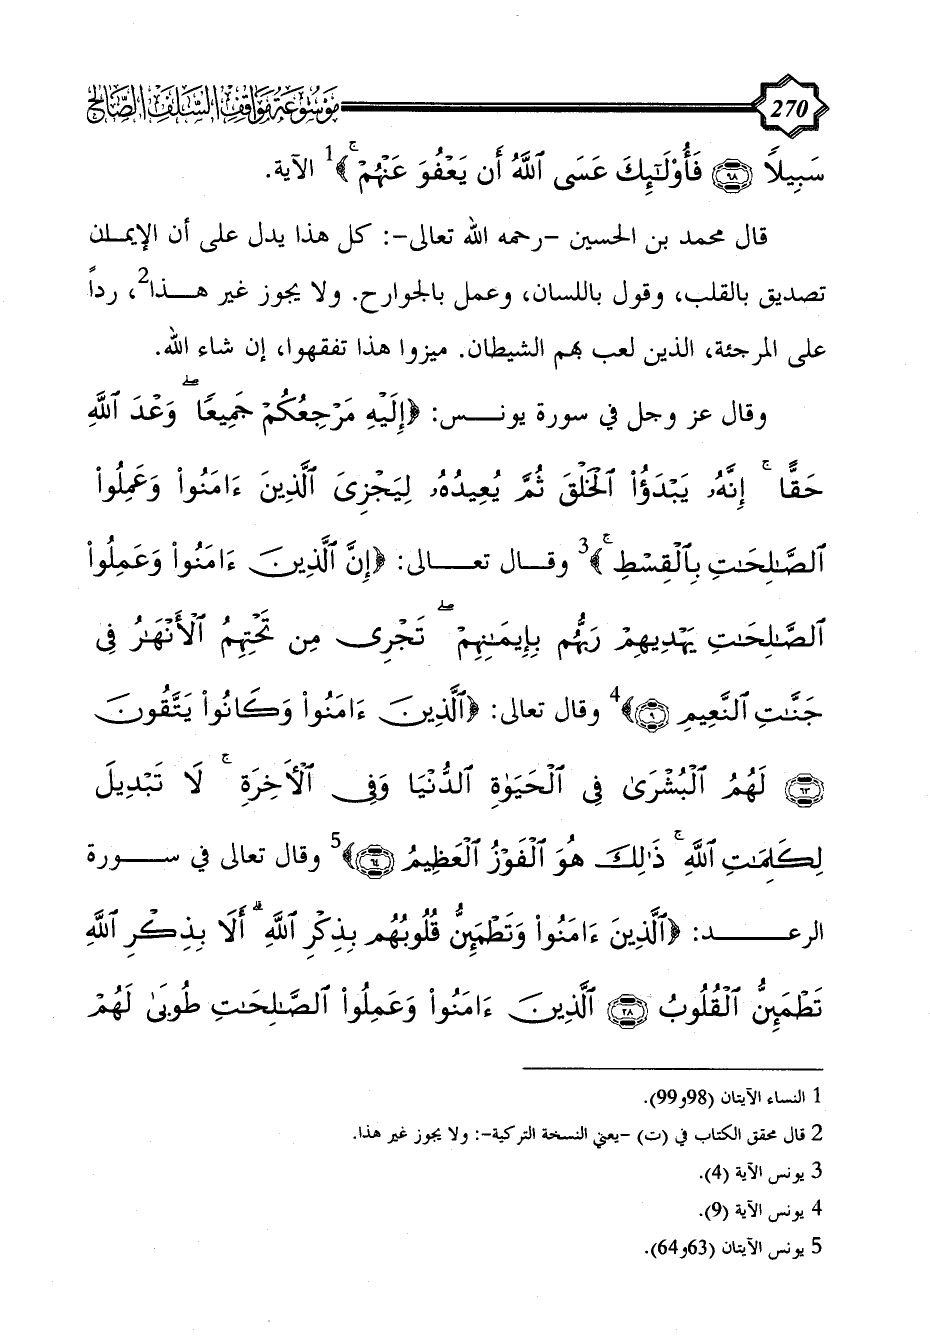 270 موسوعة مواقف السلف الصالح
سَبِيلًا ﴿٩٨﴾ فَأُوْلَٰٓئِكَ عَسَى ٱللَّهُ أَن يَعْفُوَ عَنْهُمْ ۚ﴾1 الآية.
قال محمد بن الحسين -رحمه الله تعالى-: كل هذا يدل على أن الإيمـان
تصديق بالقلب، وقول باللسان، وعمل بالجوارح. ولا يجوز غير هـــذا2، رداً
على المرجئة، الذين لعب بهم الشيطان. ميزوا هذا تفقهوا، إن شاء الله.
وقال عز وجل في سورة يونــس: ﴿إِلَيْهِ مَرْجِعُكُمْ جَمِيعًا ۖ وَعْدَ ٱللَّهِ
حَقًّا ۚ إِنَّهُۥ يَبْدَؤُا۟ ٱلْخَلْقَ ثُمَّ يُعِيدُهُۥ لِيَجْزِىَ ٱلَّذِينَ ءَامَنُوا۟ وَعَمِلُوا۟
ٱلصَّٰلِحَٰتِ بِٱلْقِسْطِ ۚ﴾3 وقــال تعــالى: ﴿إِنَّ ٱلَّذِينَ ءَامَنُوا۟ وَعَمِلُوا۟
ٱلصَّٰلِحَٰتِ يَهْدِيهِمْ رَبُّهُم بِإِيمَٰنِهِمْ ۖ تَجْرِى مِن تَحْتِهِمُ ٱلْأَنْهَٰرُ فِى
جَنَّٰتِ ٱلنَّعِيمِ ﴿٩﴾﴾4 وقال تعالى: ﴿ٱلَّذِينَ ءَامَنُوا۟ وَكَانُوا۟ يَتَّقُونَ
﴿٦٣﴾ لَهُمُ ٱلْبُشْرَىٰ فِى ٱلْحَيَوٰةِ ٱلدُّنْيَا وَفِى ٱلْأَخِرَةِ ۚ لَا تَبْدِيلَ
لِكَلِمَٰتِ ٱللَّهِ ۚ ذَٰلِكَ هُوَ ٱلْفَوْزُ ٱلْعَظِيمُ ﴿٦٤﴾﴾5 وقال تعالى في ســـورة
الرعــــد: ﴿ٱلَّذِينَ ءَامَنُوا۟ وَتَطْمَئِنُّ قُلُوبُهُم بِذِكْرِ ٱللَّهِ ۗ أَلَا بِذِكْرِ ٱللَّهِ
تَطْمَئِنُّ ٱلْقُلُوبُ ﴿٢٨﴾ ٱلَّذِينَ ءَامَنُوا۟ وَعَمِلُوا۟ ٱلصَّٰلِحَٰتِ طُوبَىٰ لَهُمْ
1 النساء الآيتان (98و99).
2 قال محقق الكتاب في (ت) -يعني النسخة التركية-: ولا يجوز غير هذا.
3 يونس الآية (4).
4 يونس الآية (9).
5 يونس الآيتان (63و64).